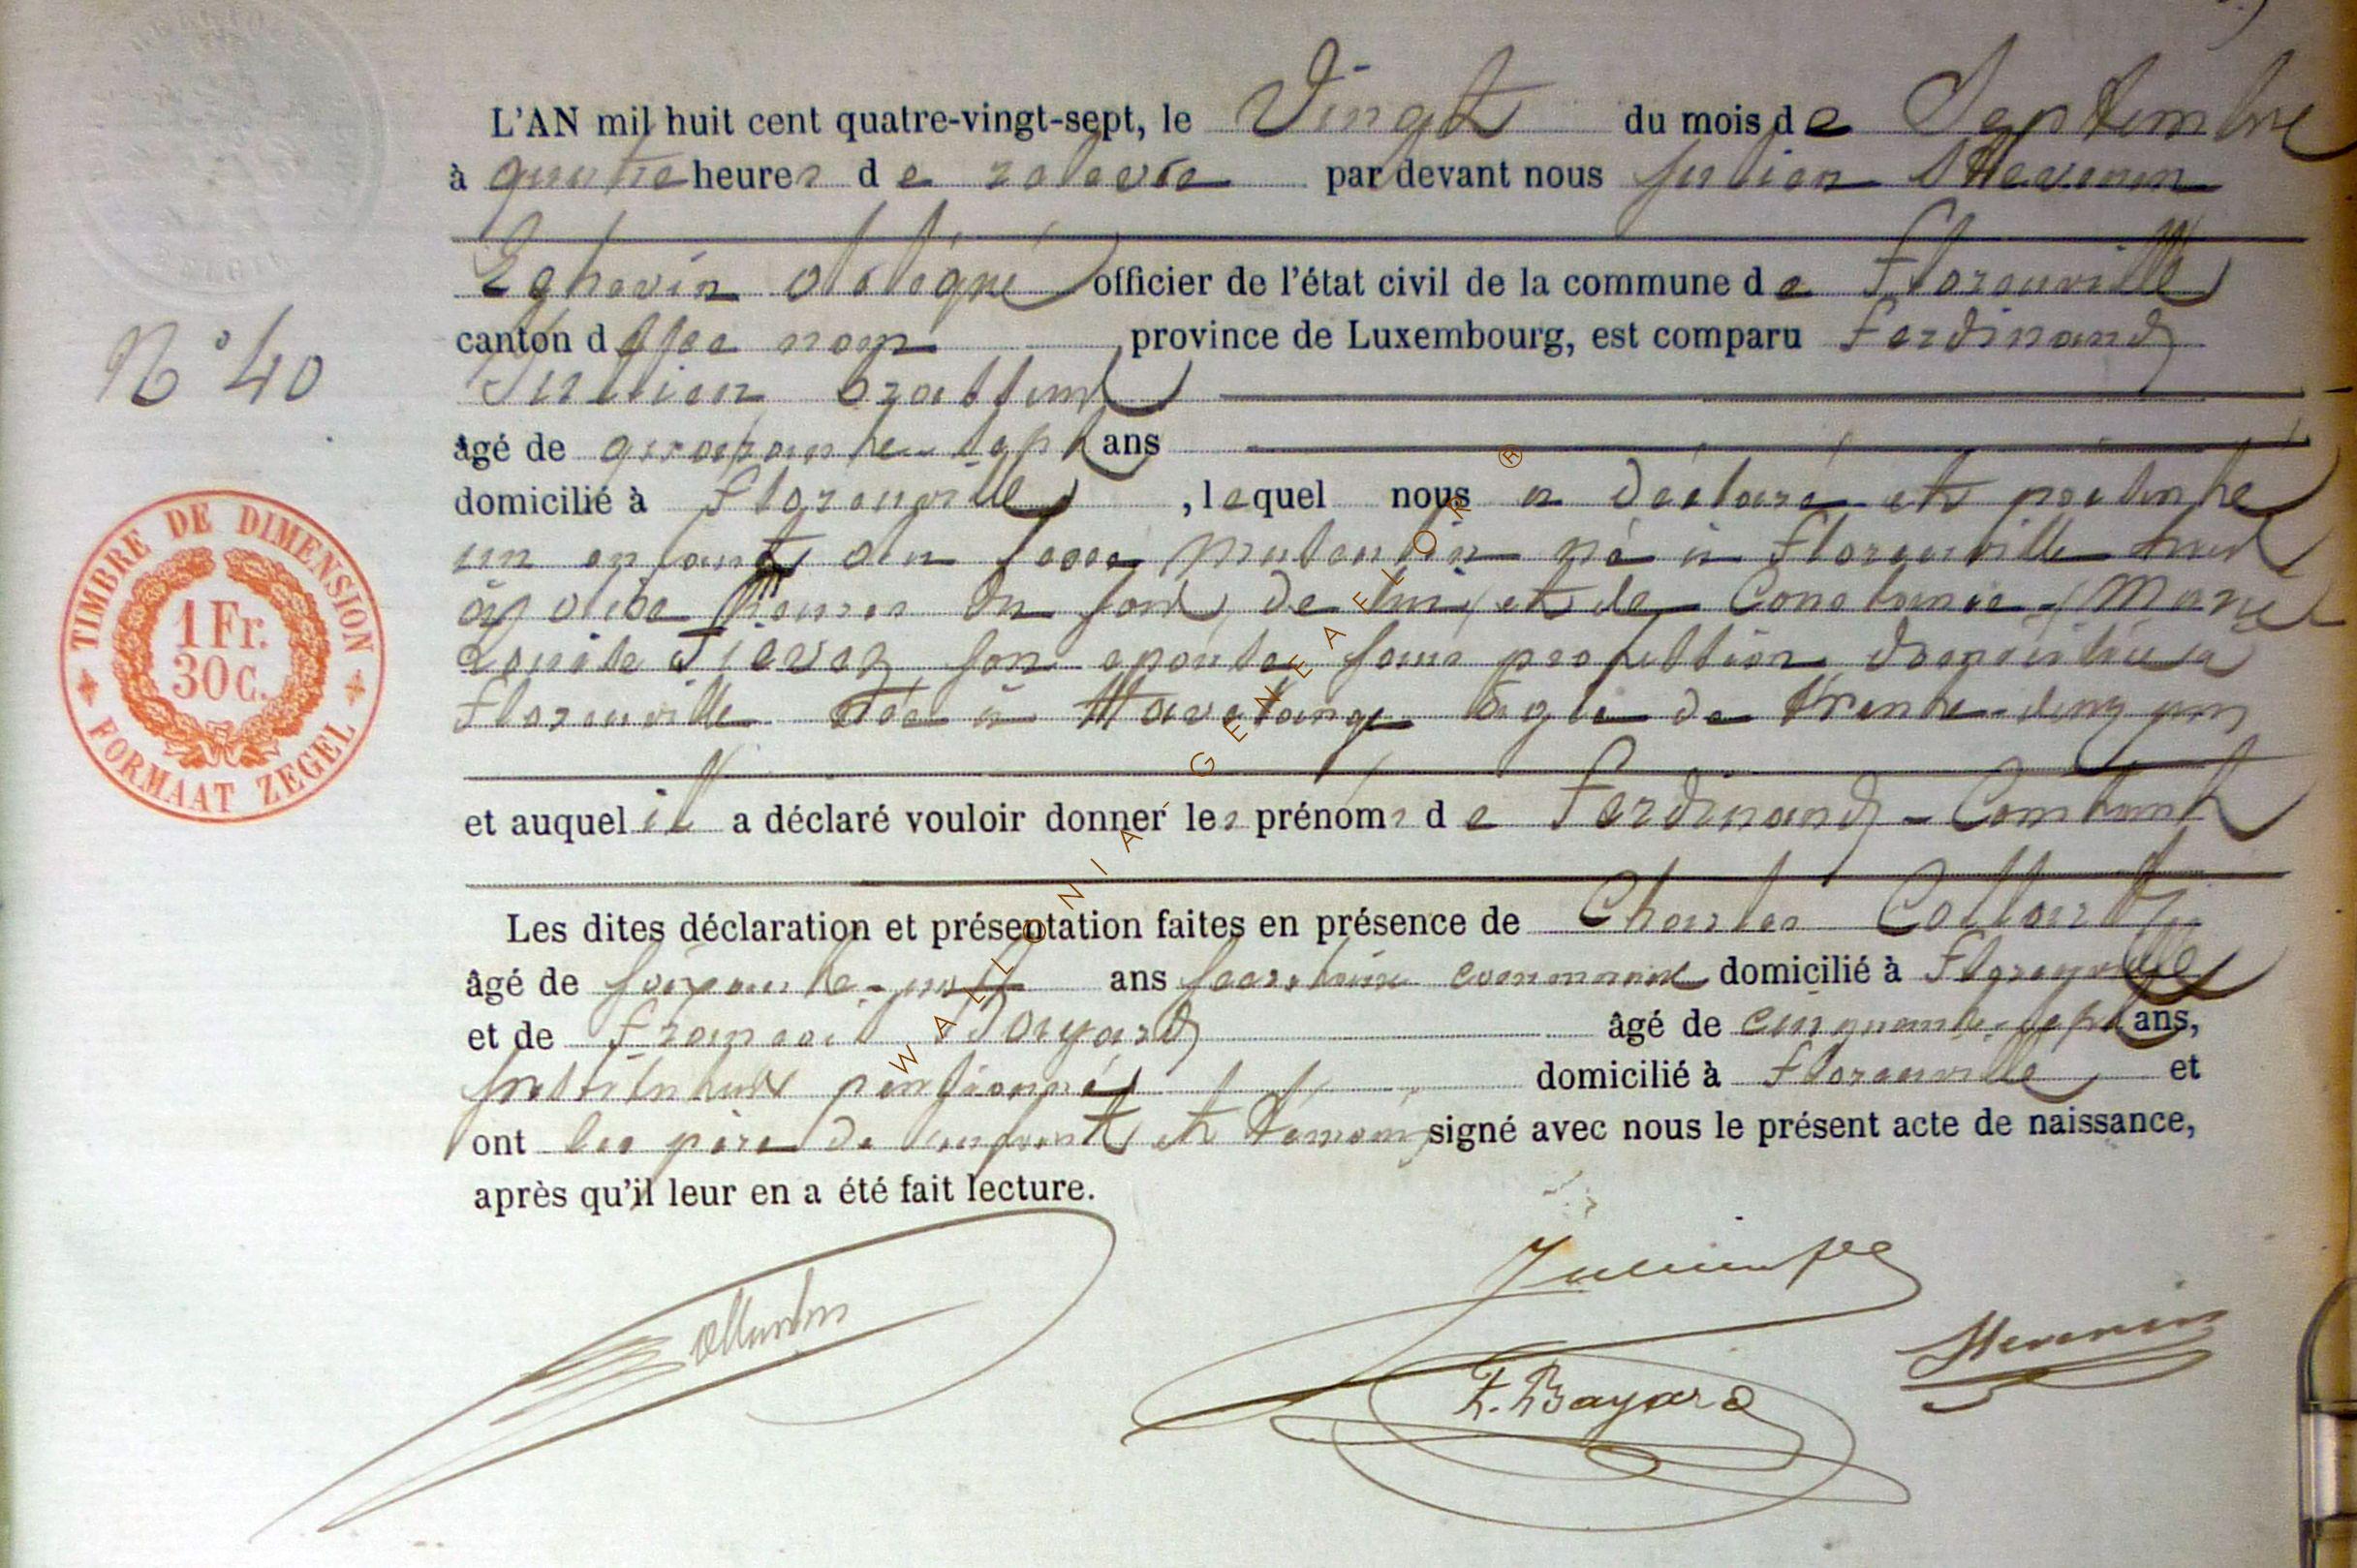 L'AN mil huit cent quatre-vingt-sept, le Vingt du mois de Septembre
à quatre heures de relevée par devant nous Julien Thevenin
Echevin délégué officier de l'état civil de la commune de Florenville
canton du nom province de Luxembourg, est comparu Ferdinand
Jullien brasseur
N° 40
âgé de quarante-sept ans
domicilié à Florenville, lequel nous a déclaré et présenté
un enfant du sexe masculin né à Florenville
heures du de lui et de Constance-Marie
Louise son épouse sans profession domiciliée à
Florenville née à Havelange âgée de trente-cinq ans
et auquel il a déclaré vouloir donner les prénoms de Ferdinand-Constant
Les dites déclaration et présentation faites en présence de Charles
âgé de soixante-neuf ans secrétaire communal domicilié à Florenville
et de François Bayard âgé de cinquante-sept ans,
instituteur pensionné domicilié à Florenville et
ont les père de l'enfant et témoins signé avec nous le présent acte de naissance,
après qu'il leur en a été fait lecture.
F. Bayard
TIMBRE DE DIMENSION
1 Fr.
30 C.
FORMAAT ZEGEL
WALLONIA GENEAELOR ®